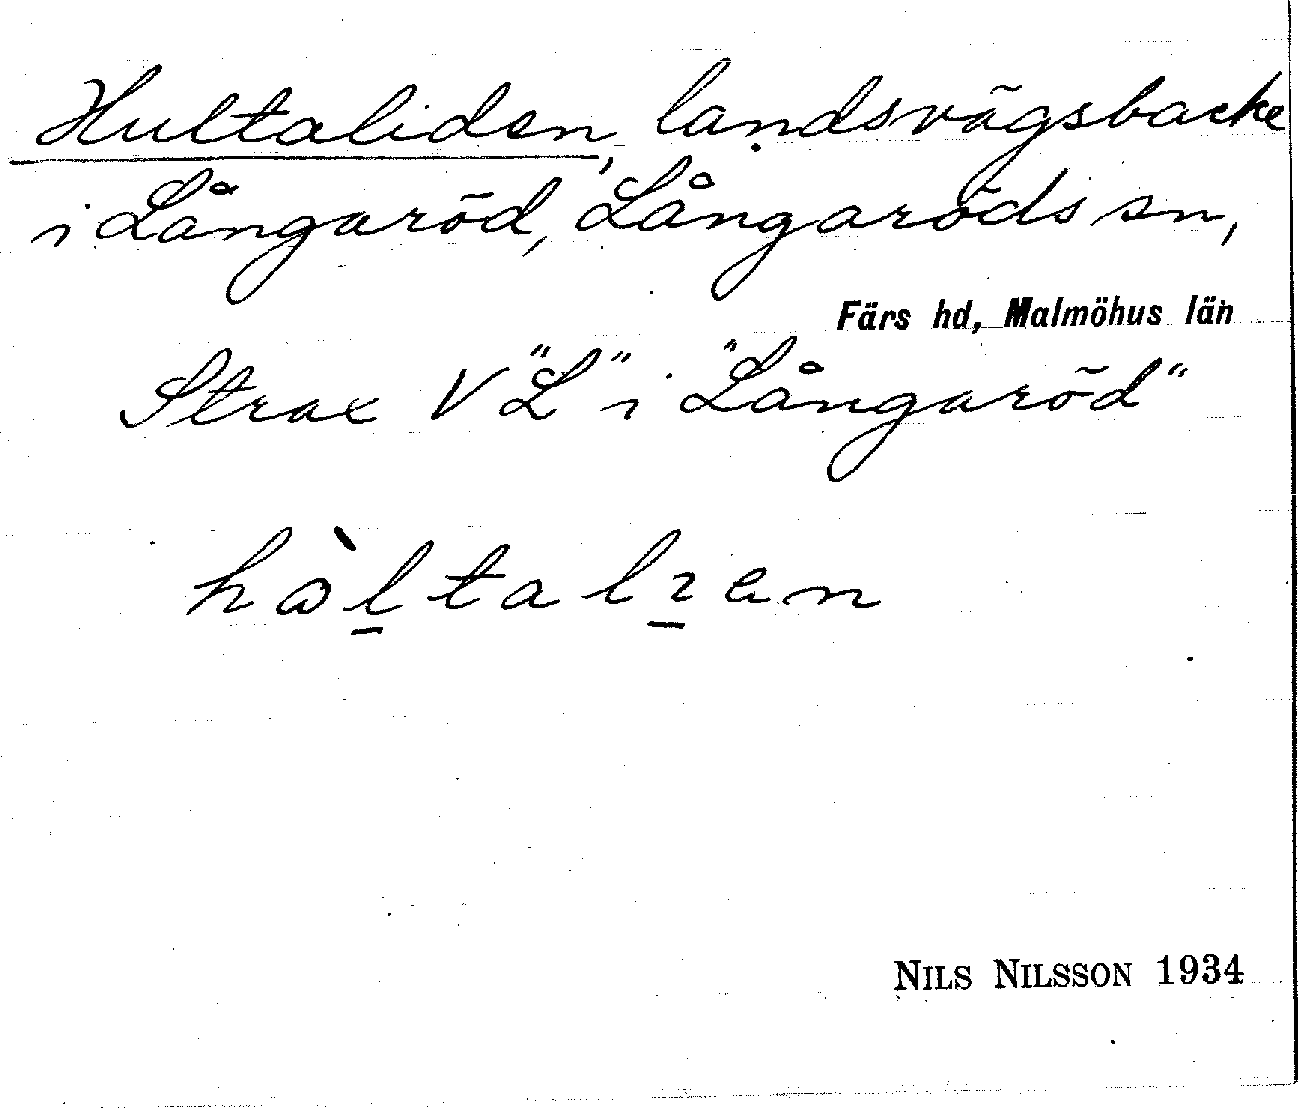 Hultaliden, landsvägsbacke
i Långaröd, Långaröds sn,
Färs hd, Malmöhus län
Strax V "L" i "Långaröd"
hàltalɿen
NILS NILSSON 1934